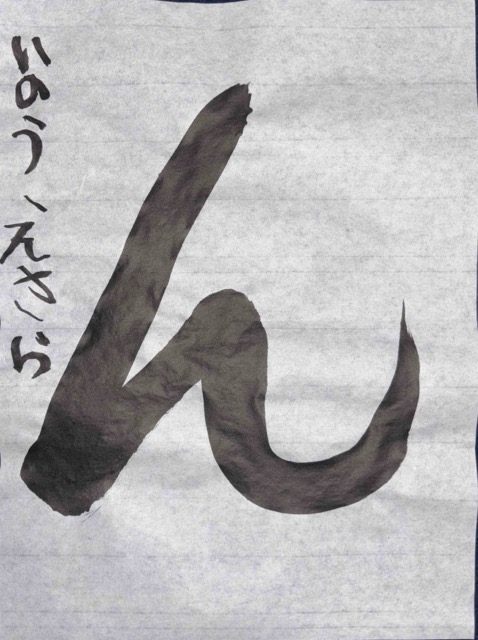 ん
いのうえさら